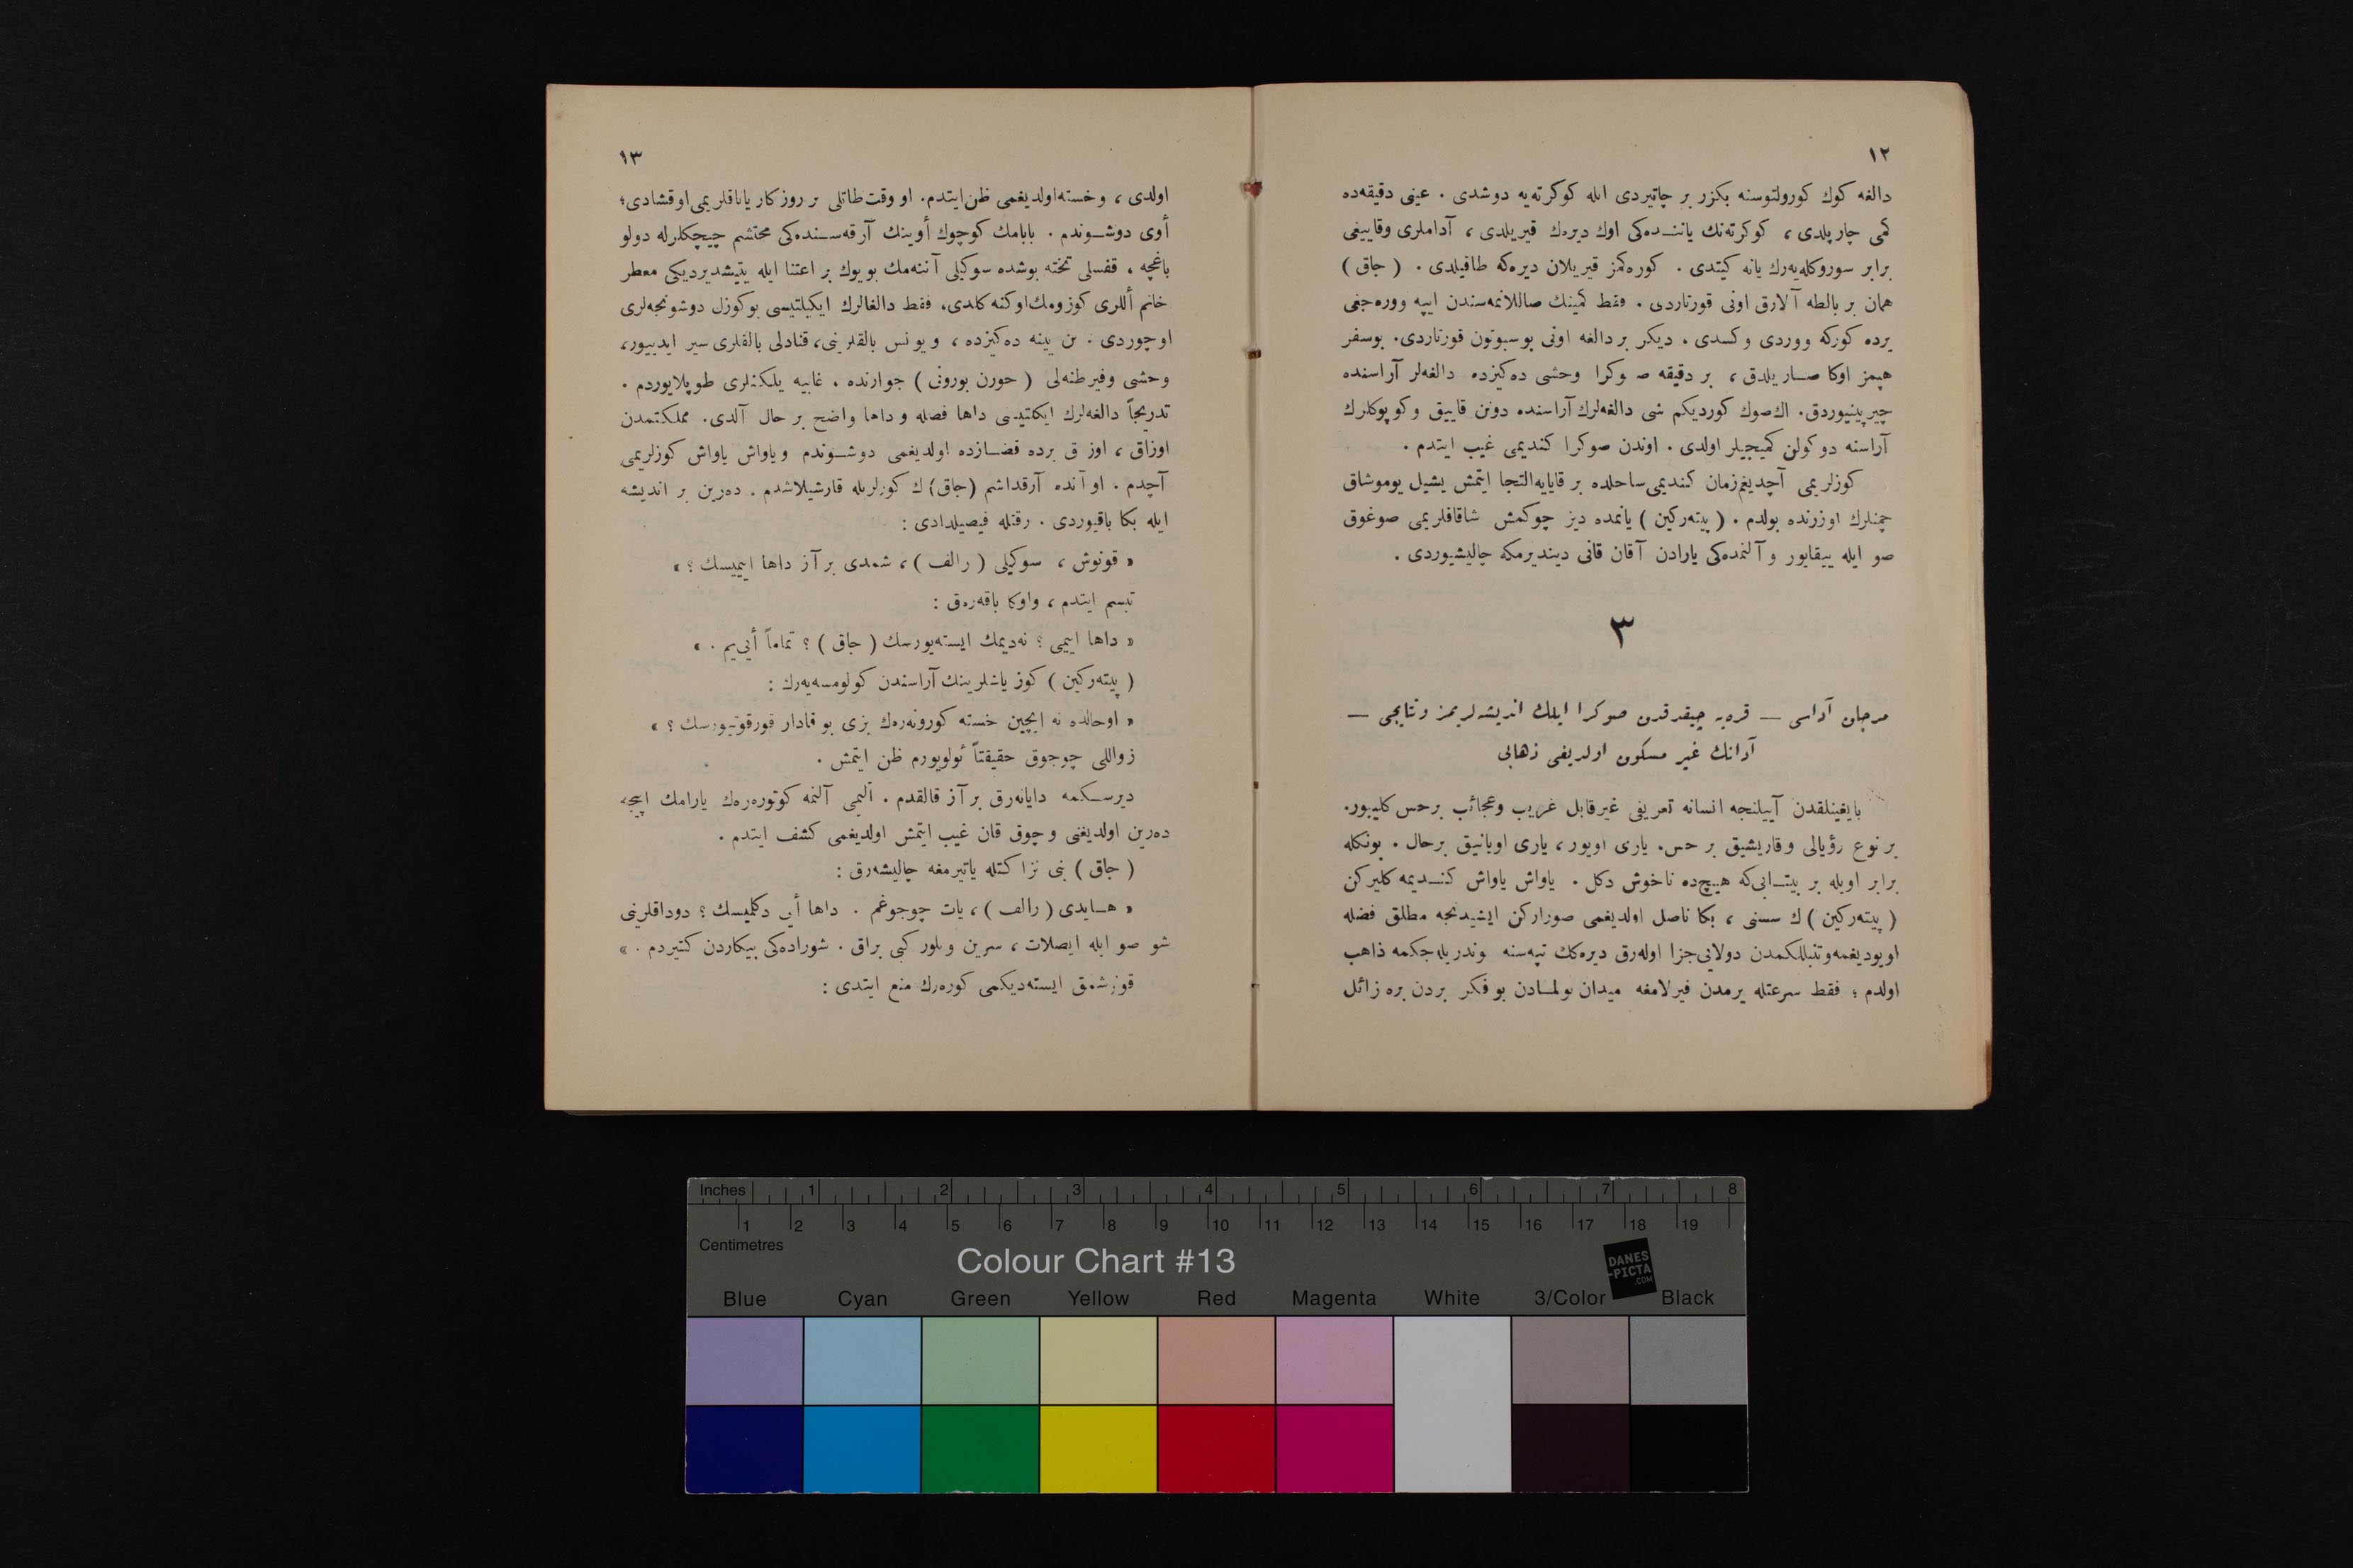 ١٢
دالغه كوك كورولتوسنه بكزر بر چاتيردى ايله كوكرته‌يه دوشدى . عينى دقيقه‌ده
كمى چارپلدى ، كوكرته‌نك ياننده‌كى اوك ديرك قيريلدى ، آداملرى وقاييغى
برابر سوروكله‌يه‌رك يانه كيتدى . كوره‌كمز قيريلان ديره‌كه طاقيلدى . ( جاق )
همان بر بالطه آلارق اونى قورتاردى . فقط كمينك صاللانمه‌سندن ايپه ووره‌جغى
يرده كوركه ووردى وكسدى . ديكر بر دالغه اونى بوسبوتون قورتاردى . بوسفر
هپمز اوكا صاريلدق ، بر دقيقه صوكرا وحشى ده‌كيزده دالغه‌لر آراسنده
چيرپينيوردق . اك صوك كورديكم شى دالغه‌لرك آراسنده دونن قاييق وكوپوكلرك
آراسنه دوكولن كميجيلر اولدى . اوندن صوكرا كنديمى غيب ايتدم .
كوزلريمى آچديغم زمان كنديمى ساحلده بر قايايه التجا ايتمش يشيل يوموشاق
چمنلرك اوزرنده بولدم . ( پيته‌ركين ) يانمده ديز چوكمش شاقاقلريمى صوغوق
صو ايله ييقايور و آلنمده‌كى يارادن آقان قانى دينديرمكه چاليشيوردى .
٣
مرجان آداسى — قره‌يه چيقدقدن صوكرا ايلك انديشه‌لريمز ونتايجى —
آدانك غير مسكون اولديغى ذهابى
بايغينلقدن آييلنجه انسانه تعريفى غيرقابل غريب وعجائب برحس كلييور.
بر نوع رؤيالى وقاريشيق بر حس. يارى اويور ، يارى اويانيق برحال . بونكله
برابر اويله بر بيتابى كه هيچ‌ده ناخوش دكل . ياواش ياواش كنديمه كليركن
( پيته‌ركين ) ك سسنى ، بكا ناصل اولديغمى صورا‌ركن ايشيدنجه مطلق فضله
اويوديغمه وتنبللكمدن دولايى جزا اوله‌رق ديره‌كك تپه‌سنه كوندريله‌جكمه ذاهب
اولدم ؛ فقط سرعتله يرمدن فيرلامغه ميدان بولمادن بو فكر بردن بره زائل
١٣
اولدى ، وخسته اولديغمى ظن ايتدم. او وقت طاتلى بر روزكار ياناقلريمى اوقشادى؛
أوى دوشوندم . بابامك كوچوك أوينك آرقه‌سنده‌كى محتشم چيچكلرله دولو
باغچه ، قفسلى تخته بوشده سوكيلى آننه‌مك بويوك بر اعتنا ايله يتيشديرديكى معطر
خانم أللرى كوزومك اوكنه كلدى. فقط دالغالرك ايكيلتيسى بوكوزل دوشونجه‌لرى
اوچوردى . بن يينه ده‌كيزده ، ويونس بالقلرينى، قنادلى بالقلرى سير ايدييور،
وحشى وفيرطنه‌لى ( حورن بورونى ) جوارنده ، غابيه يلكنلرى طوپلايوردم .
تدريجاً دالغه‌لرك ايكلتيسى داها فضله و داها واضح بر حال آلدى. مملكتمدن
اوزاق ، اوزاق برده قضازده اولديغمى دوشوندم وياواش ياواش كوزلريمى
آچدم . او آنده آرقداشم (جاق) ك كوزلريله قارشيلاشدم . ده‌رين بر انديشه
ايله بكا باقيوردى . رقتله فيصيلدادى :
« قونوش ، سوكيلى ( رالف ) ، شمدى بر آز داها اييميسك ؟ »
تبسم ايتدم ، واوكا باقه‌رق :
« داها اييمى ؟ نه‌ديمك ايسته‌يورسك ( جاق ) ؟ تماماً أيى‌يم . »
( پيته‌ركين ) كوز ياشلرينك آراسندن كولومسه‌يه‌رك :
« اوحالده نه ايچين خسته كورونه‌رك بزى بو قادار قورقوتيورسك ؟ »
زواللى چوجوق حقيقتاً ئولويورم ظن ايتمش .
ديرسكمه دايانه‌رق بر آز قالقدم . أليمى آلنمه كوتوره‌رك يارامك ايجه
ده‌رين اولديغنى و چوق قان غيب ايتمش اولديغمى كشف ايتدم .
( جاق ) بنى نزاكتله ياتيرمغه چاليشه‌رق :
« هايدى ( رالف ) ، يات چوجوغم . داها أيى دكلميسك ؟ دوداقلرينى
شو صو ايله ايصلات ، سرين وبلور كبى براق . شوراده‌كى بيكاردن كتيردم . »
قونوشمق ايسته‌ديكمى كوره‌رك منع ايتدى :
Inches 1 2 3 4 5 6 7 8
1 2 3 4 5 6 7 8 9 10 11 12 13 14 15 16 17 18 19
Centimetres
Colour Chart #13
DANES
-PICTA
.COM
Blue Cyan Green Yellow Red Magenta White 3/Color Black